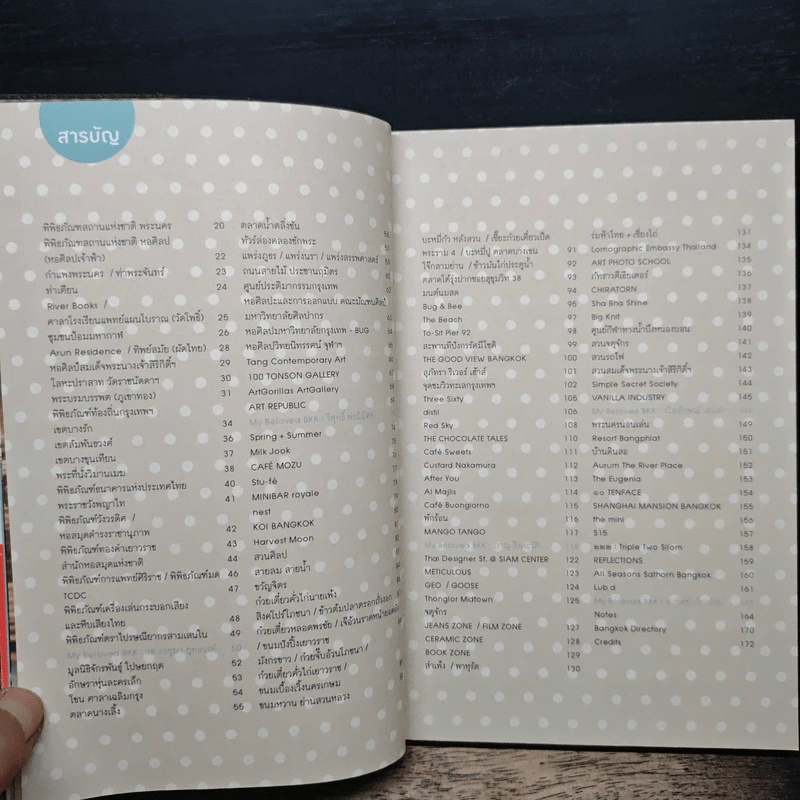 สารบัญ
พิพิธภัณฑสถานแห่งชาติ พระนคร 20
พิพิธภัณฑสถานแห่งชาติ หอศิลป
(หอศิลปเจ้าฟ้า) 22
กำแพงพระนคร / ท่าพระจันทร์ 23
ท่าเตียน 24
River Books /
ศาลาโรงเรียนแพทย์แผนโบราณ (วัดโพธิ์) 25
ชุมชนป้อมมหากาฬ 26
Arun Residence / ทิพย์สมัย (ผัดไทย) 28
หอศิลป์สมเด็จพระนางเจ้าสิริกิติ์ฯ 29
โลหะปราสาท วัดราชนัดดาฯ 30
พระบรมบรรพต (ภูเขาทอง) 31
พิพิธภัณฑ์ท้องถิ่นกรุงเทพฯ
เขตบางรัก 34
เขตสัมพันธวงศ์ 36
เขตบางขุนเทียน 37
พระที่นั่งวิมานเมฆ 38
พิพิธภัณฑ์ธนาคารแห่งประเทศไทย 40
พระราชวังพญาไท 41
พิพิธภัณฑ์วังวรดิศ /
หอสมุดดำรงราชานุภาพ 42
พิพิธภัณฑ์ทองคำเยาวราช 43
สำนักหอสมุดแห่งชาติ 44
พิพิธภัณฑ์การแพทย์ศิริราช / พิพิธภัณฑ์มด 46
TCDC 47
พิพิธภัณฑ์เครื่องเล่นกระบอกเสียง
และหีบเสียงไทย 48
พิพิธภัณฑ์ตราไปรษณียากรสามเสนใน 49
My Beloved BKK : 50
มูลนิธิจักรพันธุ์ โปษยกฤต 52
อักษราหุ่นละครเล็ก 53
โขน ศาลาเฉลิมกรุง 54
ตลาดนางเลิ้ง 55
ตลาดน้ำตลิ่งชัน 56
ทัวร์ล่องคลองชักพระ 57
แพร่งภูธร / แพร่งนรา / แพร่งสรรพศาสตร์
ถนนสายไม้ ประชานฤมิตร
ศูนย์ประติมากรรมกรุงเทพ
หอศิลปะและการออกแบบ คณะมัณฑนศิลป์
มหาวิทยาลัยศิลปากร
หอศิลปมหาวิทยาลัยกรุงเทพ - BUG
หอศิลป์วิทยนิทรรศน์ จุฬาฯ
Tang Contemporary Art
100 TONSON GALLERY
ArtGorillas ArtGallery
ART REPUBLIC
My Beloved BKK :
Spring + Summer
Milk Jook
CAFÉ MOZU
Stu-fé
MINIBAR royale
nest
KOI BANGKOK
Harvest Moon
สวนศิลป์
สายลม สายน้ำ
ขวัญจิตร
ก๋วยเตี๋ยวคั่วไก่นายเพ้ง
สิงคโปร์โภชนา /
ก๋วยเตี๋ยวหลอดพรชัย /
/ ขนมปังปิ้งเยาวราช
มังกรขาว / ก๋วยจั๊บอ้วนโภชนา /
ก๋วยเตี๋ยวคั่วไก่เยาวราช /
ขนมเบื้องเวิ้งนครเกษม
ขนมหวาน ย่านสวนหลวง
บะหมี่กัว หลังสวน / เซี๊ยะก๋วยเตี๋ยวเป็ด
พระราม 4 / บะหมี่ปู ตลาดบางเขน 91
โจ๊กสามย่าน / ข้าวมันไก่ประตูน้ำ 92
ตลาดโต้รุ่งปากซอยสุขุมวิท 38 93
มนต์นมสด 94
Bug & Bee 95
The Beach 97
To-Sit Pier 92 98
สะพานที่ปังกรรัศมีโชติ 99
THE GOOD VIEW BANGKOK 100
สุภัทรา ริเวอร์ เฮ้าส์ 101
จุดชมวิวทะเลกรุงเทพฯ 102
Three Sixty 105
distil 106
Red Sky 108
THE CHOCOLATE TALES 110
Café Sweets 111
Custard Nakamura 112
After You 113
Al Majlis 114
Café Buongiorno 115
พักร้อน 116
MANGO TANGO 117
My Beloved BKK : 118
Thai Designer St. @ SIAM CENTER 122
METICULOUS 123
GEO / GOOSE 124
Thonglor Midtown 125
จตุจักร
JEANS ZONE / FILM ZONE 127
CERAMIC ZONE 128
BOOK ZONE 129
สำเพ็ง / พาหุรัด 130
ร่มฟ้าไทย + เซี่ยงไถ่ 131
Lomographic Embassy Thailand 134
ART PHOTO SCHOOL 135
ภัทราวดีเธียเตอร์ 136
CHIRATORN 137
Sha Bha Shine 138
Big Knit 139
ศูนย์กีฬาทางน้ำบึงหนองบอน 140
สวนจตุจักร 141
สวนรถไฟ 142
สวนสมเด็จพระนางเจ้าสิริกิติ์ฯ 143
Simple Secret Society 144
VANILLA INDUSTRY 145
My Beloved BKK : 146
พระนครนอนเล่น 149
Resort Bangphlat 150
บ้านดินสอ 151
Aurum The River Place 152
The Eugenia 153
๑๐ TENFACE 154
SHANGHAI MANSION BANGKOK 155
the mini 156
S15 157
๒๒๒ : Triple Two Silom 158
REFLECTIONS 159
All Seasons Sathorn Bangkok 160
Lub d 161
My Beloved BKK : 
Notes 164
Bangkok Directory 170
Credits 172